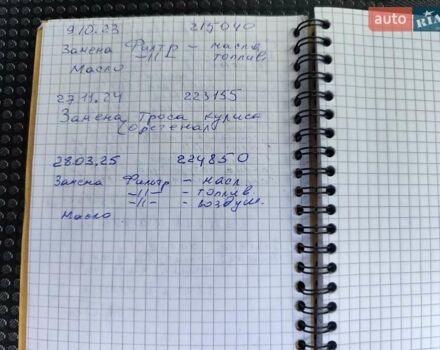 9.10.23 215040
Замена Фильтр - масла
-//- топлив
Масло
27.11.24 223155
Замена Троса кулисы
(орегенал)
28.03.25 224850
Замена Фильтр - масл.
-//- - топлив.
-//- - воздуш.
Масло
auto RIA